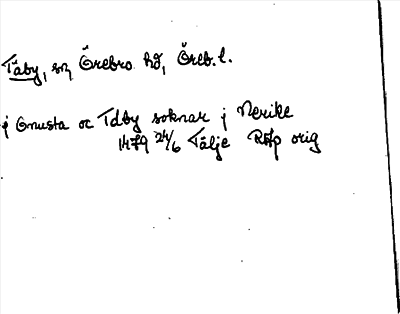 Täby, sn, Örebro hd, Öreb. l.
j Gnusta oc Tdby soknar j Nerike
1479 24/6 Tälje RAp orig